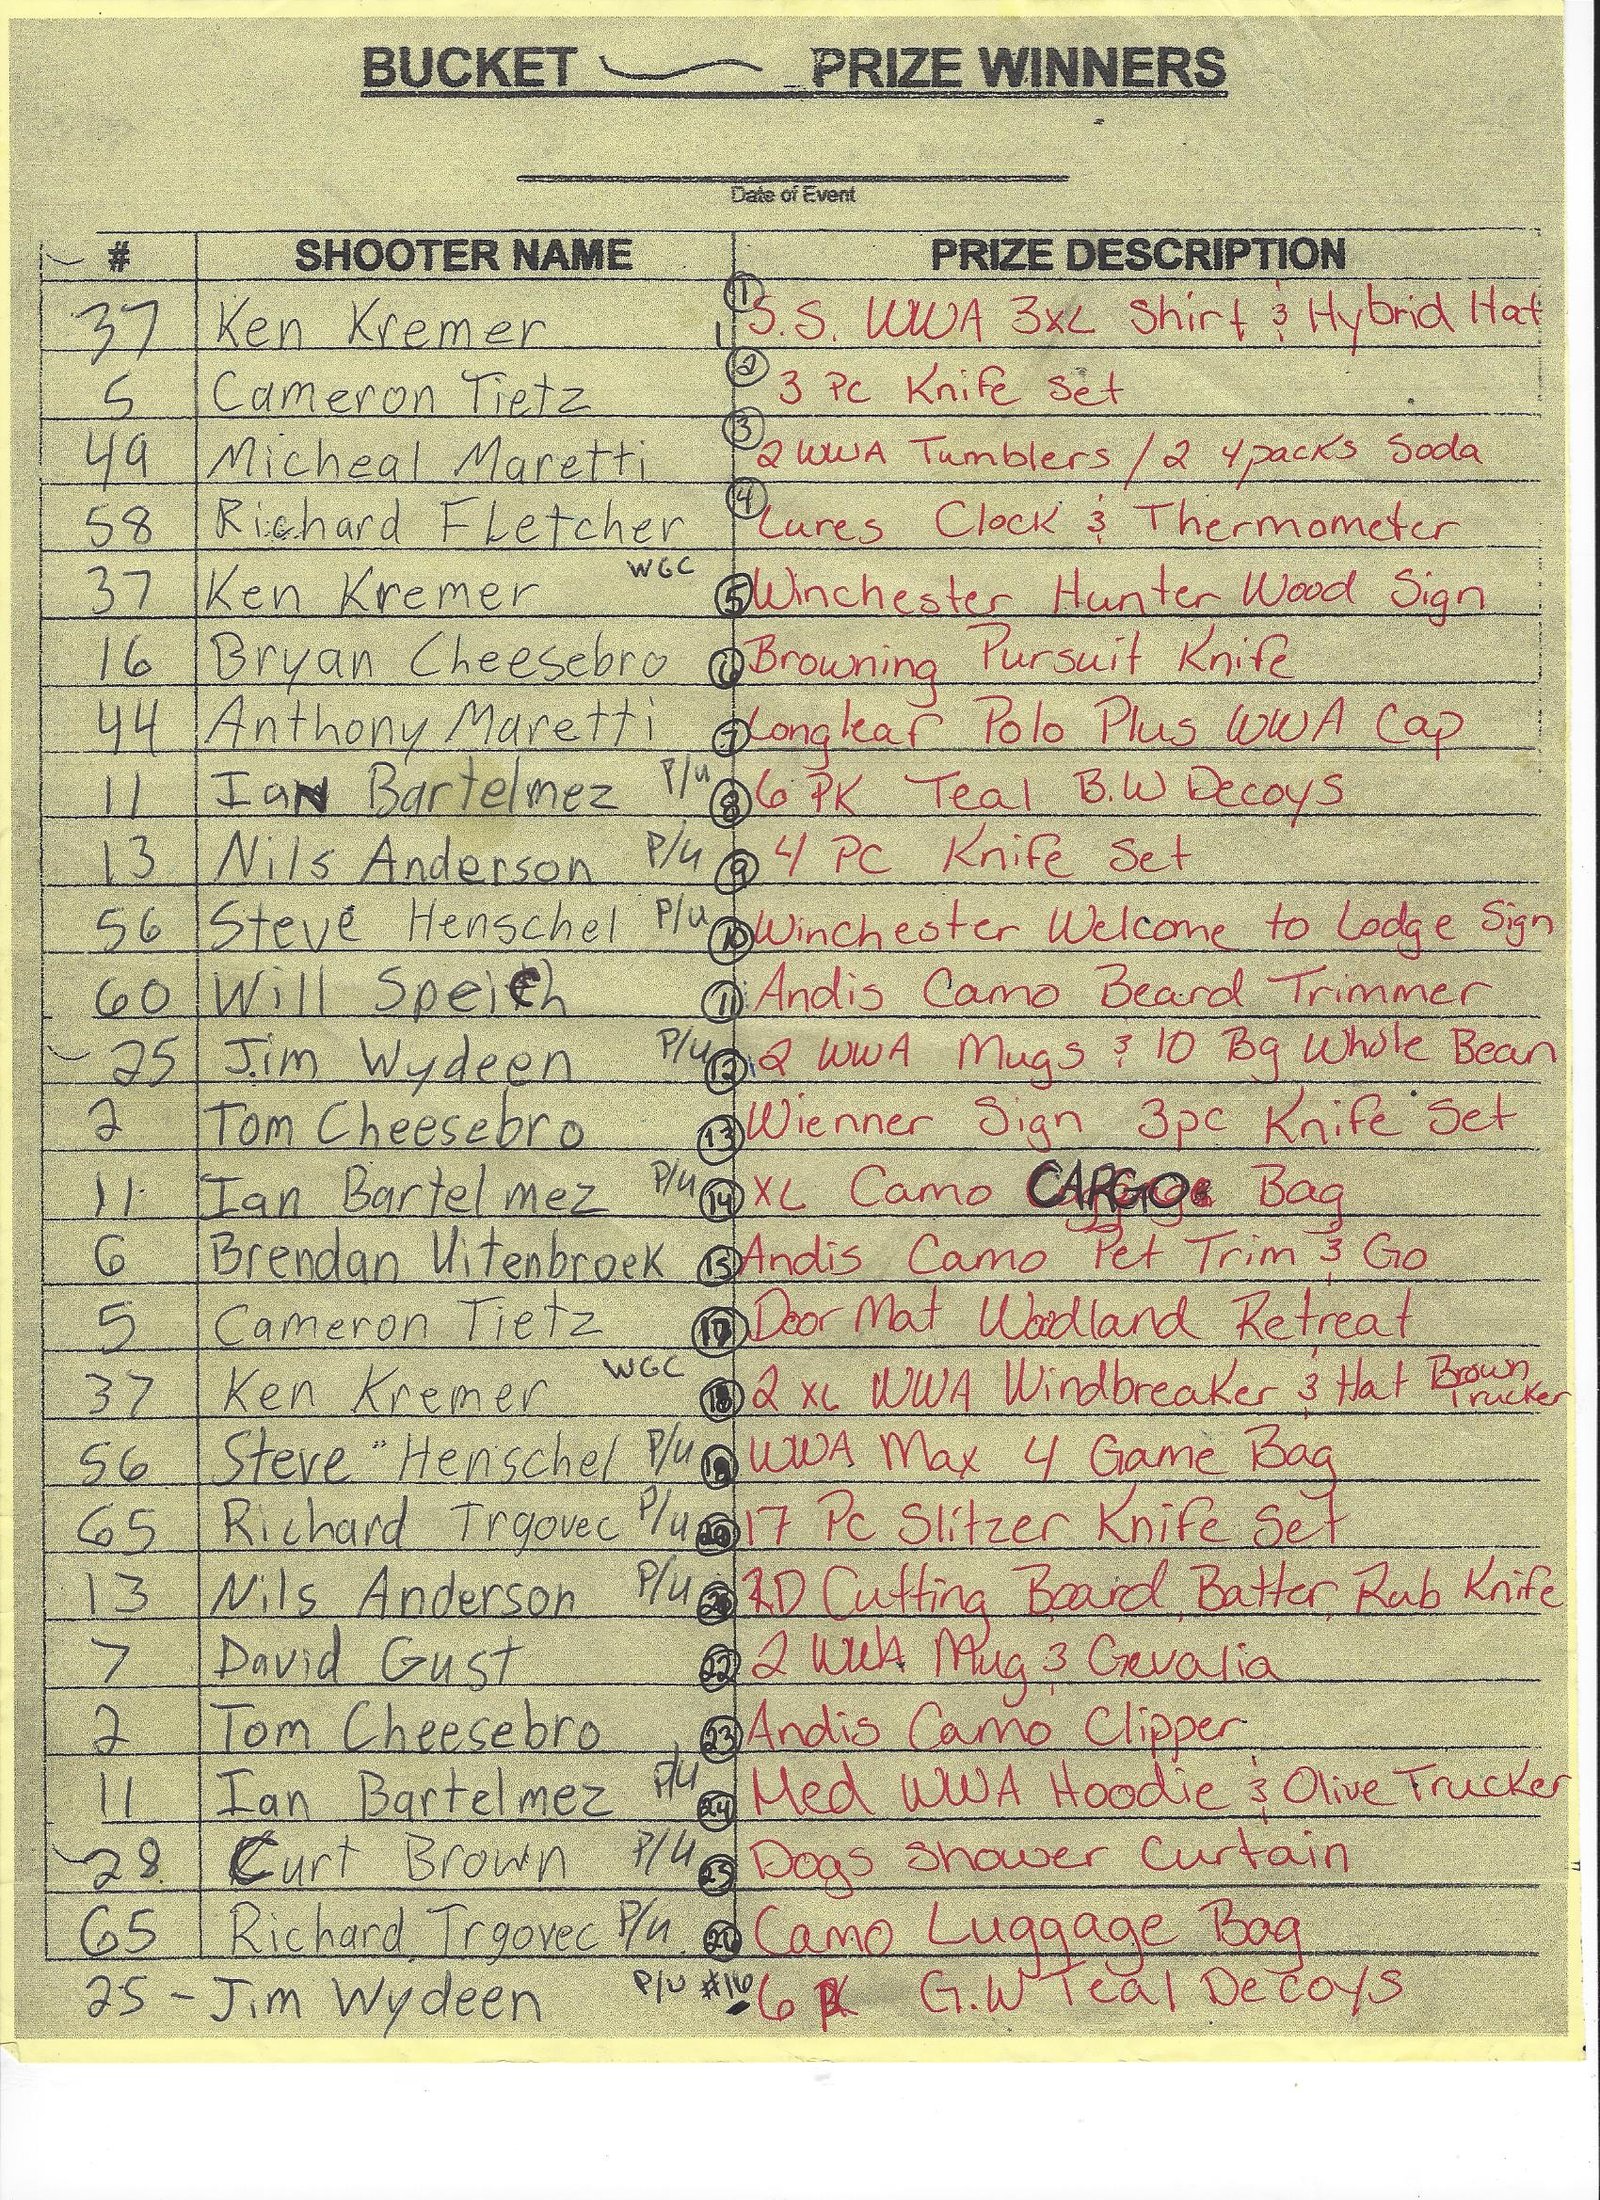 BUCKET PRIZE WINNERS
Date of Event
# SHOOTER NAME PRIZE DESCRIPTION
37 Ken Kremer 1 S.S. WWA 3XL Shirt & Hybrid Hat
5 Cameron Tietz 2 3 Pc Knife Set
49 Micheal Maretti 3 2 WWA Tumblers / 2 4packs Soda
58 Richard Fletcher 4 Lures Clock & Thermometer
37 Ken Kremer WGC 5 Winchester Hunter Wood Sign
16 Bryan Cheesebro 6 Browning Pursuit Knife
44 Anthony Maretti 7 Longleaf Polo Plus WWA Cap
11 Ian Bartelmez P/u 8 6 PK Teal B.W Decoys
13 Nils Anderson P/u 9 4 PC Knife Set
56 Steve Henschel P/u 10 Winchester Welcome to Lodge Sign
60 Will Speich 11 Andis Camo Beard Trimmer
25 Jim Wydeen P/u 12 2 WWA Mugs & 10 Bg Whole Bean
2 Tom Cheesebro 13 Wienner Sign 3pc Knife Set
11 Ian Bartelmez P/u 14 XL Camo CARGO Bag
6 Brendan Uitenbroek 15 Andis Camo Pet Trim & Go
5 Cameron Tietz 17 Door Mat Woodland Retreat
37 Ken Kremer WGC 18 2 XL WWA Windbreaker & Hat Brown Trucker
56 Steve Henschel P/u 19 WWA Max 4 Game Bag
65 Richard Trgovec P/u 20 17 Pc Slitzer Knife Set
13 Nils Anderson P/u RD Cutting Board, Batter, Rub Knife
7 David Gust 22 2 WWA Mug & Gevalia
2 Tom Cheesebro 23 Andis Camo Clipper
11 Ian Bartelmez P/u 24 Med WWA Hoodie & Olive Trucker
28 Curt Brown P/u 25 Dogs Shower Curtain
65 Richard Trgovec P/u 26 Camo Luggage Bag
25 - Jim Wydeen P/u #16 6 PK G.W Teal Decoys